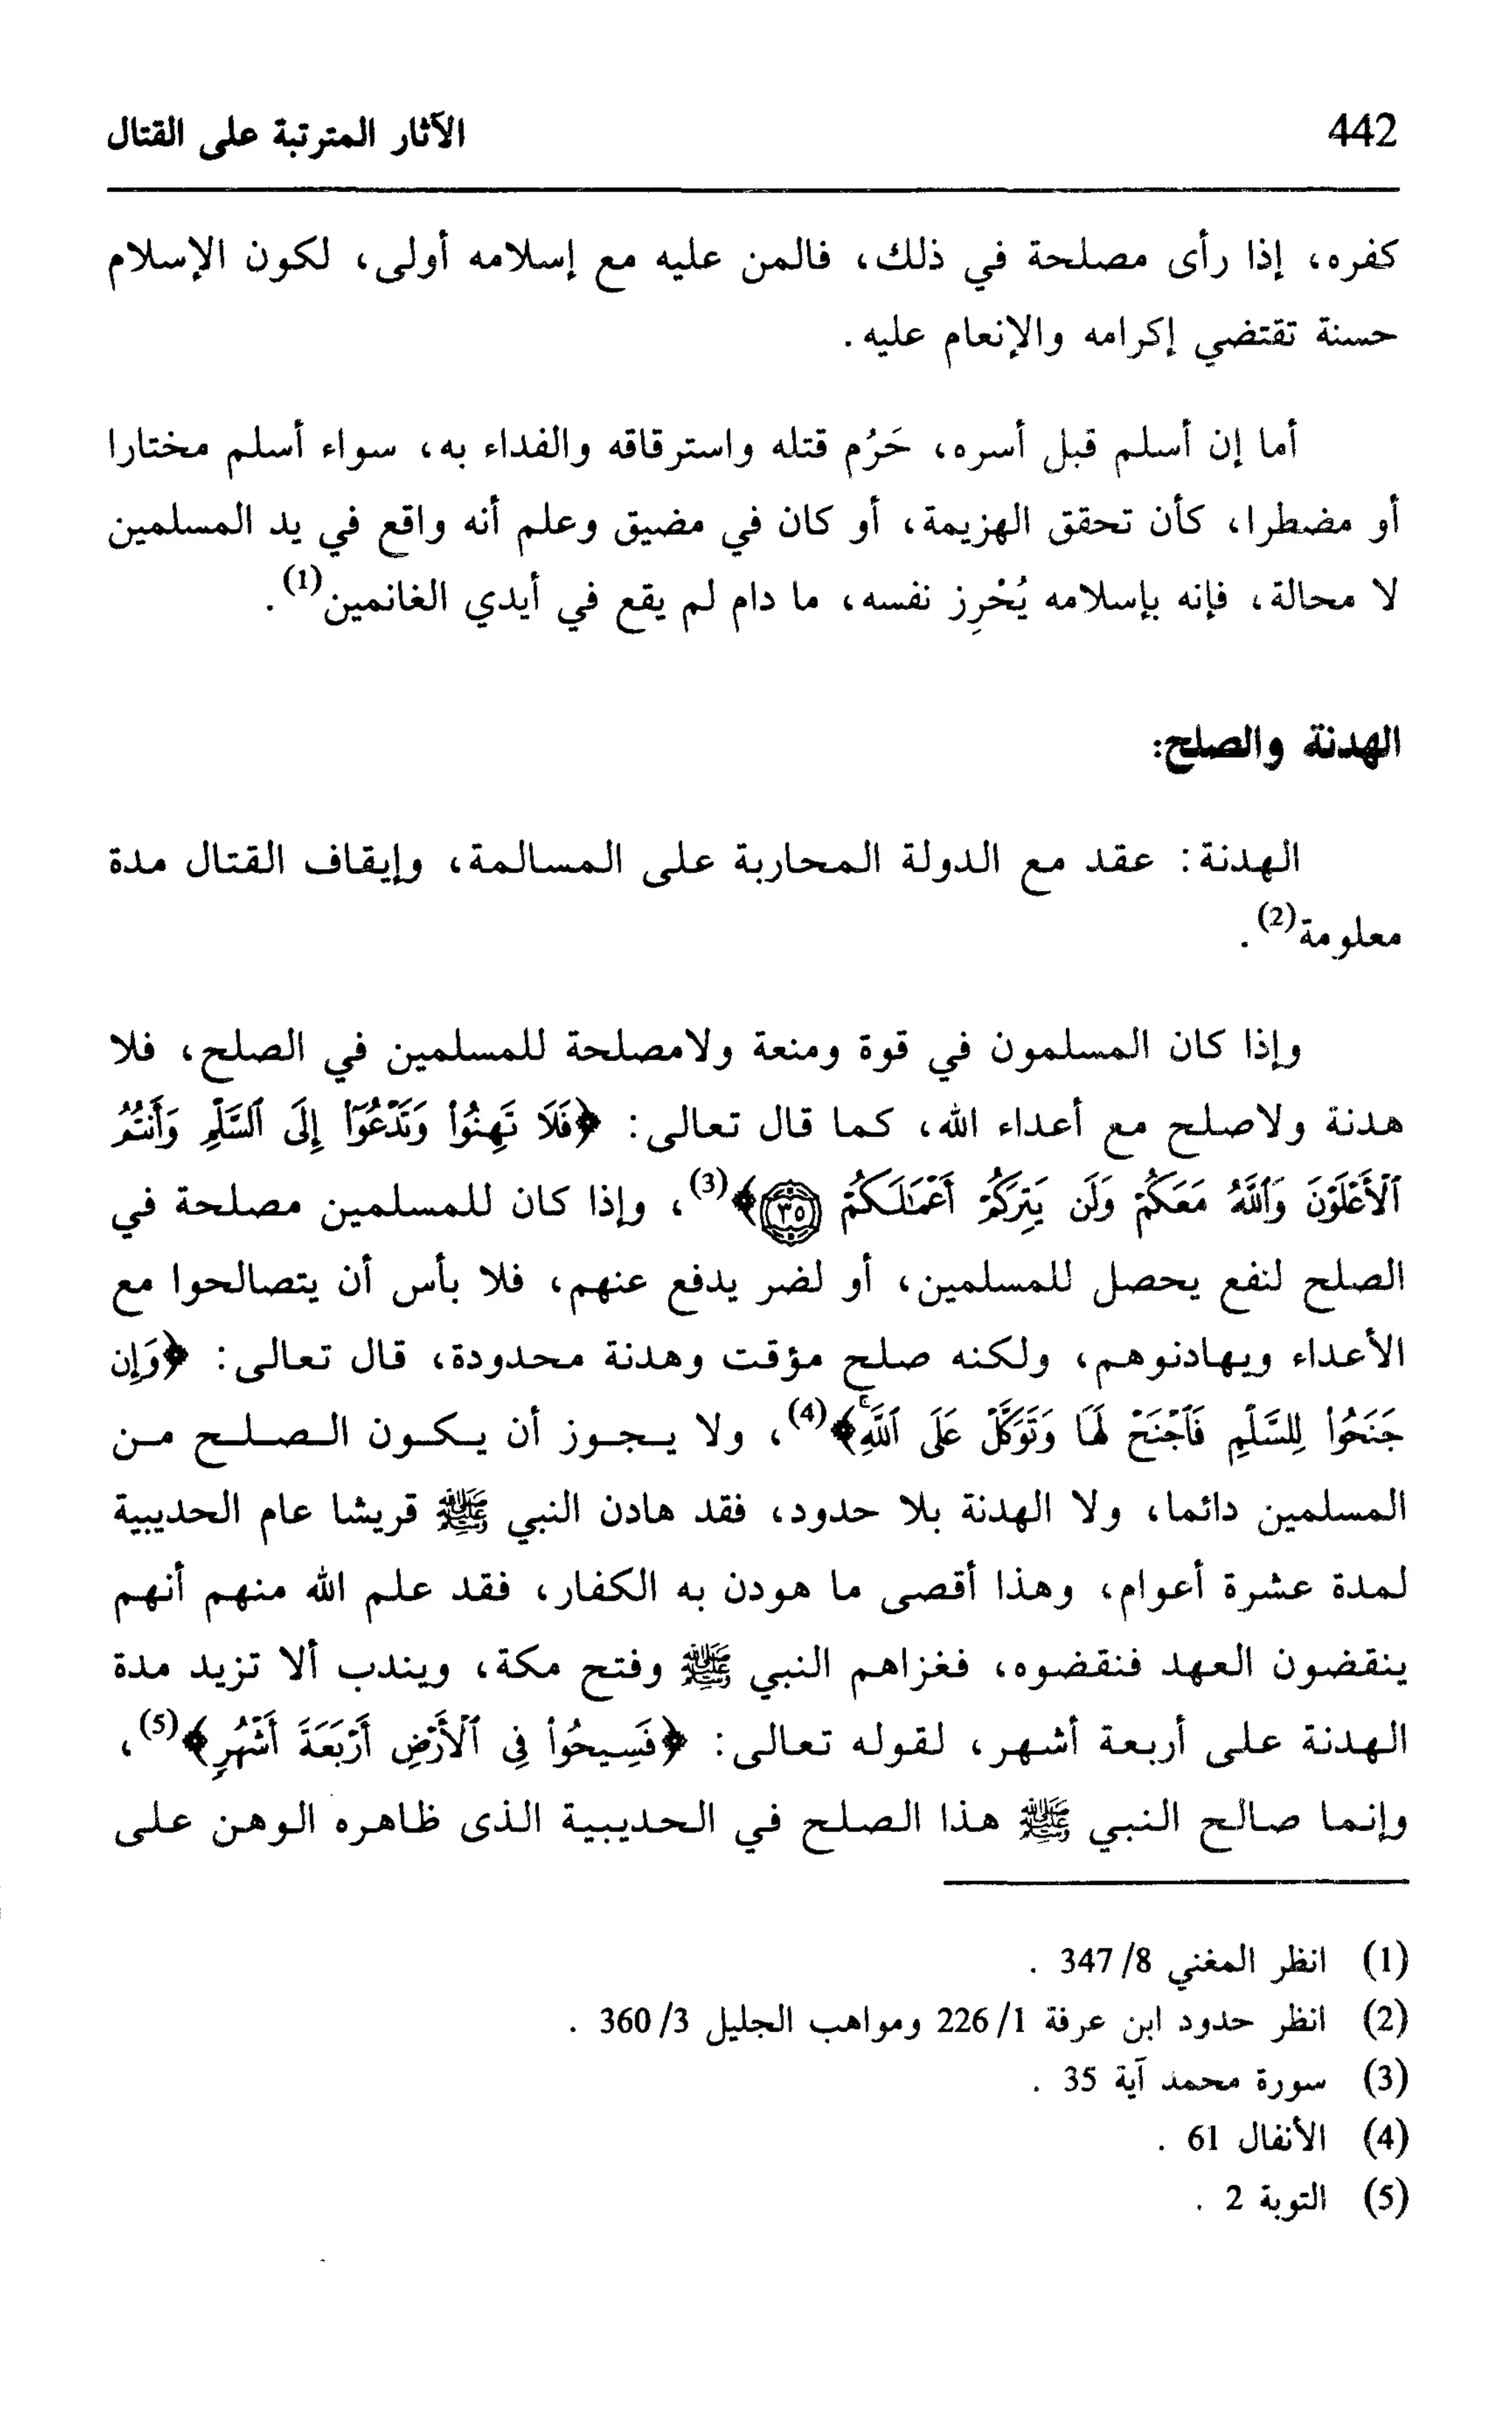 442
الآثار المترتبة على القتال
كفره، إذا رأى مصلحة في ذلك، فالمن عليه مع إسلامه أولى، لكون الإسلام
حسنة تقتضي إكرامه والإنعام عليه.
أما إن أسلم قبل أسره، حَرُم قتله واسترقاقه والفداء به، سواء أسلم مختارا
أو مضطرا، كأن تحقق الهزيمة، أو كان في مضيق وعلم أنه واقع في يد المسلمين
لا محالة، فإنه بإسلامه يُحْرِز نفسه، ما دام لم يقع في أيدي الغانمين(1).
الهدنة والصلح:
الهدنة: عقد مع الدولة المحاربة على المسالمة، وإيقاف القتال مدة
معلومة(2).
وإذا كان المسلمون في قوة ومنعة ولامصلحة للمسلمين في الصلح، فلا
هدنة ولاصلح مع أعداء الله، كما قال تعالى: ﴿فَلَا تَهِنُوا۟ وَتَدْعُوٓا۟ إِلَى ٱلسَّلْمِ وَأَنتُمُ
ٱلْأَعْلَوْنَ وَٱللَّهُ مَعَكُمْ وَلَن يَتِرَكُمْ أَعْمَٰلَكُمْ ٣٥﴾(3)، وإذا كان للمسلمين مصلحة في
الصلح لنفع يحصل للمسلمين، أو لضر يدفع عنهم، فلا بأس أن يتصالحوا مع
الأعداء ويهادنوهم، ولكنه صلح مؤقت وهدنة محدودة، قال تعالى: ﴿وَإِن
جَنَحُوا۟ لِلسَّلْمِ فَٱجْنَحْ لَهَا وَتَوَكَّلْ عَلَى ٱللَّهِۚ﴾(4)، ولا يجوز أن يكون الصلح من
المسلمين دائما، ولا الهدنة بلا حدود، فقد هادن النبي ﷺ قريشا عام الحديبية
لمدة عشرة أعوام، وهذا أقصى ما هودن به الكفار، فقد علم الله منهم أنهم
ينقضون العهد فنقضوه، فغزاهم النبي ﷺ وفتح مكة، ويندب ألا تزيد مدة
الهدنة على أربعة أشهر، لقوله تعالى: ﴿فَسِيحُوا۟ فِى ٱلْأَرْضِ أَرْبَعَةَ أَشْهُرٍ﴾(5)،
وإنما صالح النبي ﷺ هذا الصلح في الحديبية الذى ظاهره الوهن على
(1) انظر المغني 8/ 347 .
(2) انظر حدود ابن عرفة 1/ 226 ومواهب الجليل 3/ 360 .
(3) سورة محمد آية 35 .
(4) الأنفال 61 .
(5) التوبة 2 .